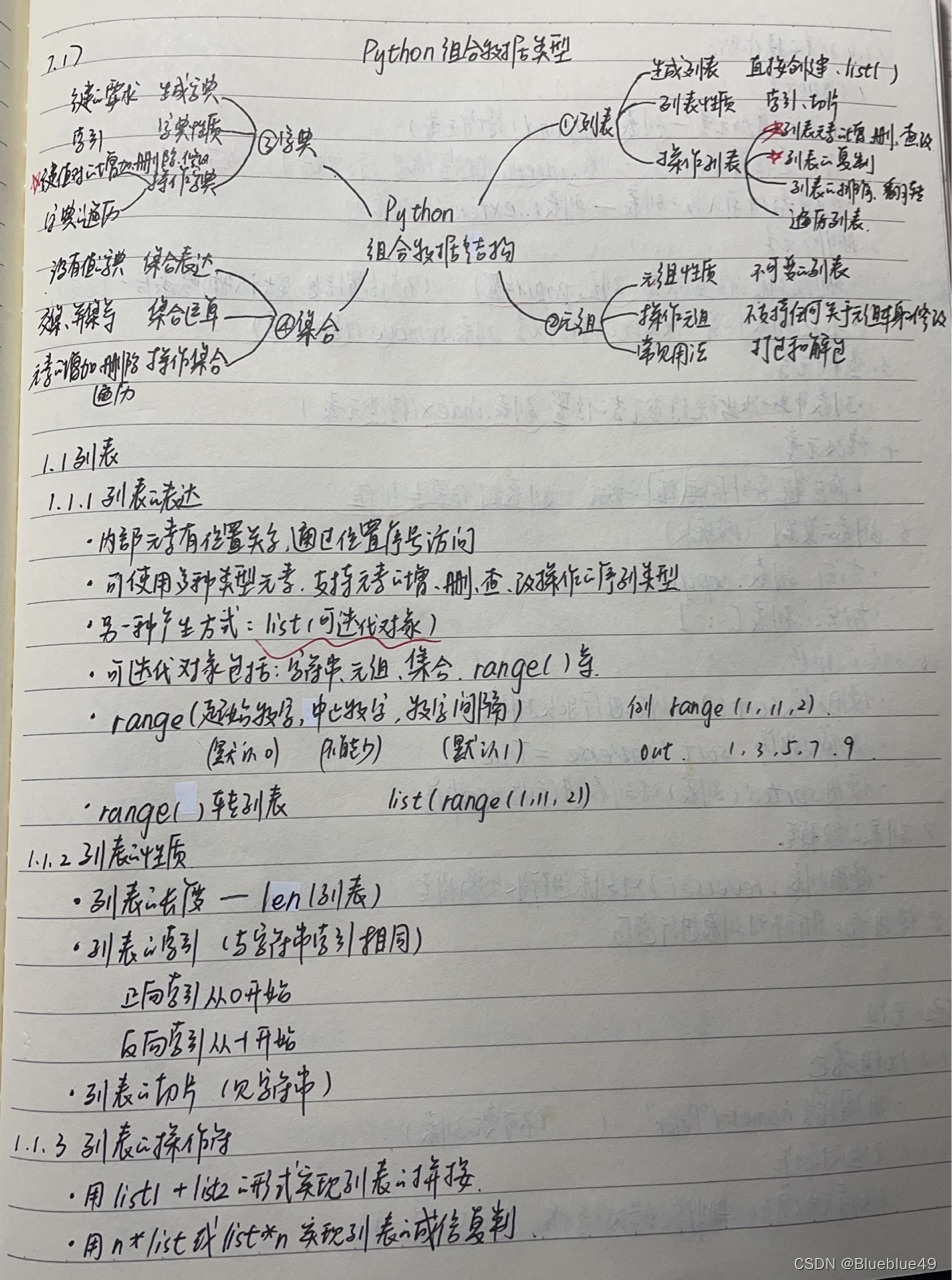 7.17
Python组合数据类型
①列表
生成列表 直接创建、list()
列表性质 索引、切片
操作列表
列表元素的增、删、查改
列表的复制
列表的排序、翻转
遍历列表
②元组
元组性质 不可变的列表
操作元组 不支持任何关于元组本身的修改
常见用法 打包和解包
Python
组合数据结构
③字典
键的要求 生成字典
索引 字典性质
键值对的增加、删除、修改 操作字典
字典的遍历
④集合
没有值的字典 集合表达
交集、并集等 集合运算
元素的增加、删除 操作集合
遍历
1.1 列表
1.1.1 列表的表达
·内部元素有位置关系,通过位置序号访问
·可使用多种类型元素,支持元素的增、删、查、改操作的序列类型
·另一种产生方式:list(可迭代对象)
·可迭代对象包括:字符串、元组、集合、range()等
·range(起始数字,中止数字,数字间隔) 例 range(1,11,2)
(默认0) (不能少) (默认1) out. 1,3,5,7,9
·range()转列表 list(range(1,11,2))
1.1.2 列表的性质
·列表的长度—len(列表)
·列表的索引(与字符串索引相同)
正向索引从0开始
反向索引从-1开始
·列表的切片(见字符串)
1.1.3 列表的操作符
·用list1+list2的形式实现列表的拼接
·用n*list或list*n实现列表的成倍复制
CSDN @Blueblue49